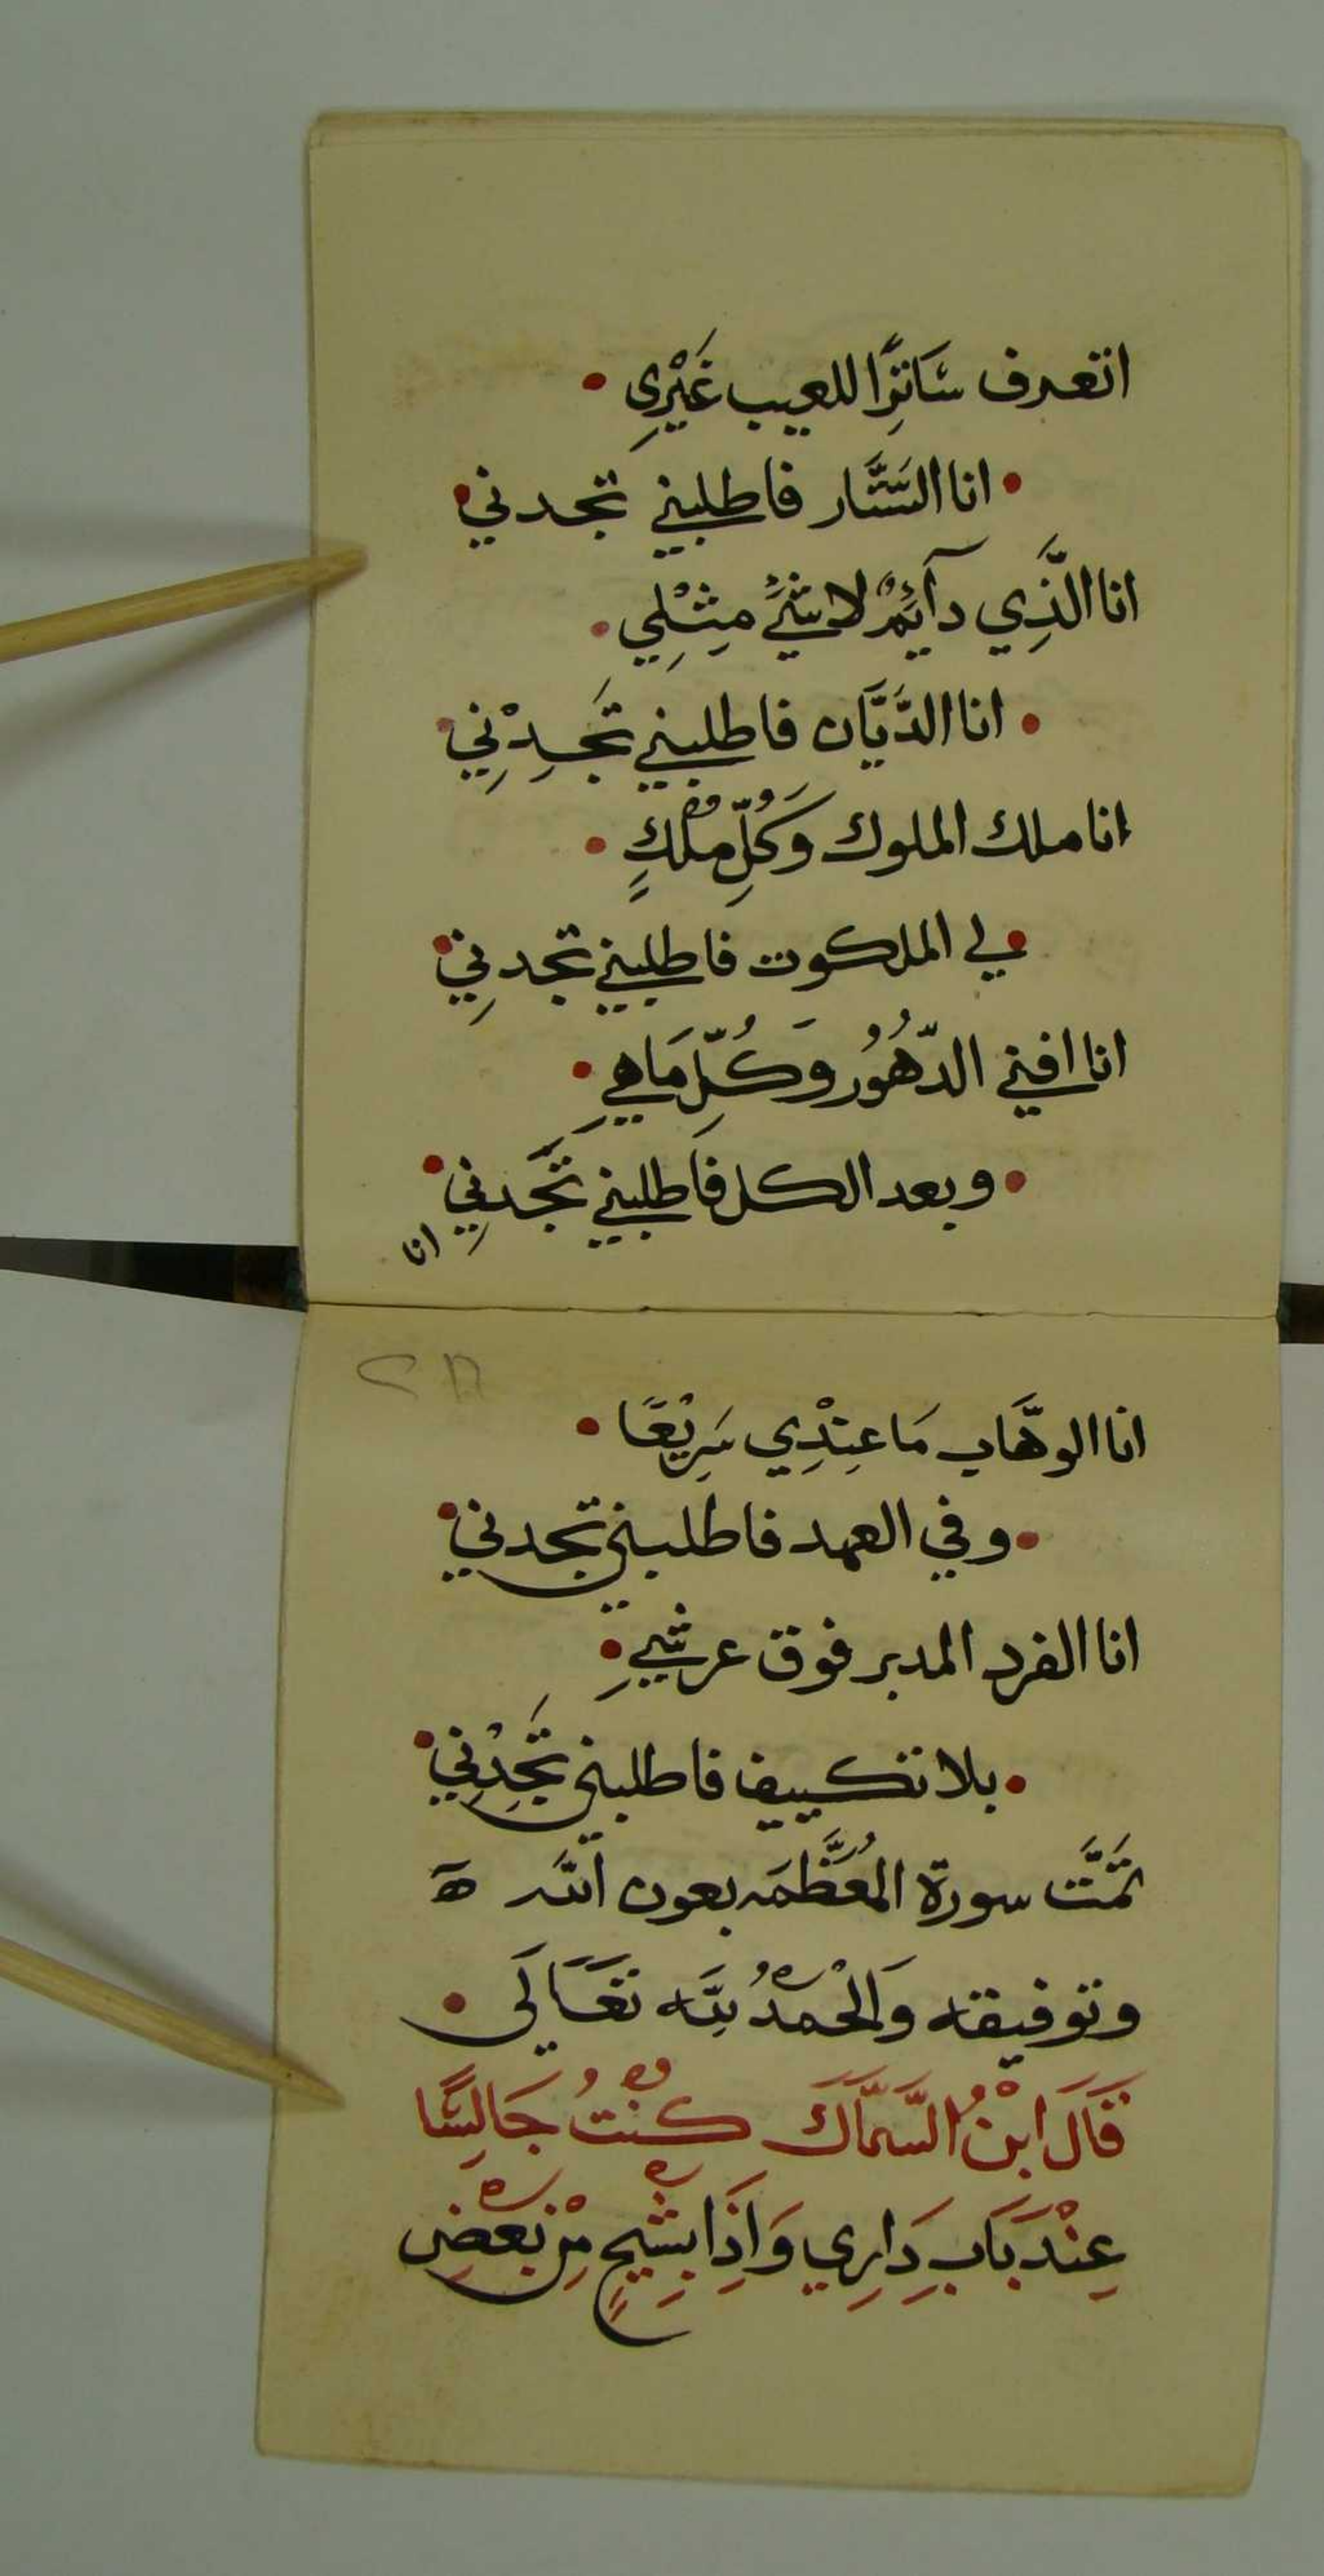 اتعرف سَاتِرًا للعيب غَيْرِي •
• انا السَّتَّار فاطلبني تجدني •
انا الَّذِي دآئِمٌ لا شَيْءَ مِثْلِي •
• انا الدَّيَّان فاطلبني تَجِدْنِي •
انا ملك الملوك وَكُلِّ مُلْكٍ •
• لي الملكوت فاطلبني تجدنِي •
انا افني الدّهُوُر وَكُلِّ مَا هِي •
• وبعد الكل فاَطلبني تَجدنِي •
انا
انا الوهَّاب مَا عِنْدِي سَرِيْعًا •
• وفي العهد فاطلبني تجدني •
انا الفرد المدبر فوق عرشِي •
• بلا تكييف فاطلبني تَجِدْنِي •
تمَّتَ سورة المُعَظَّمَه بعون اللّه ه
وتوفيقه وَالْحَمْدُ لِلَّه تَعَالَى •
قَالَ ابْنُ السَّمَّاكَ كُنْتُ جَالِسًا
عِنْدَ بَابِ دَارِي وَاِذَا بِشَيْخٍ مِنْ بَعْضِ